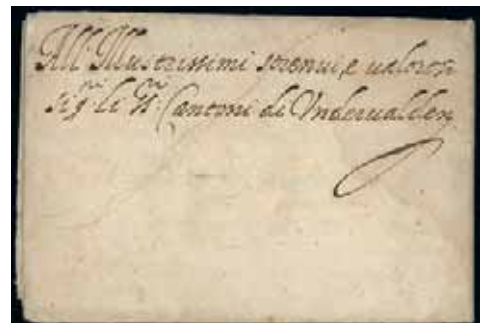 All Illustrissimi strenui, e ualorosi
Sig.ri li Cantoni di Vnderualden